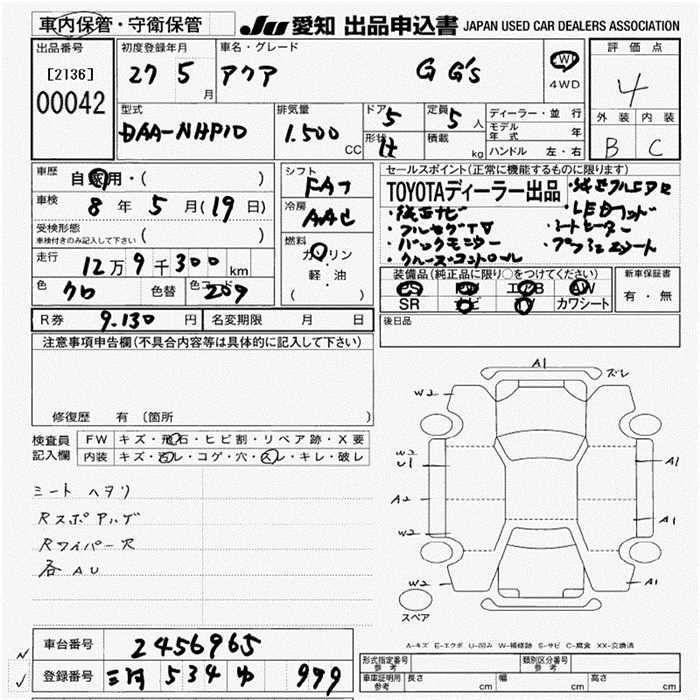 車内保管・守衛保管
JU 愛知 出品申込書 JAPAN USED CAR DEALERS ASSOCIATION
出品番号
[2136]
00042
初度登録年月
27 5 月
車名・グレード
アクア G G's
2WD
4WD
評価点
4
外装 内装
B C
型式
DAA-NHP10
排気量
1.500 CC
ドア 5
形状
定員 5 人
積載 kg
ディーラー・並行
モデル年式 年
ハンドル 左・右
車歴
自家用・( )
車検
8 年 5 月(19 日)
受検形態
車検付きのみ記入して下さい ( )
走行
12万9千300 km
色 クロ 色替 色コード 209
シフト
FAT
冷房
AAC
燃料
ガソリン
軽・油
( )
セールスポイント(正常に機能するものに限ります)
TOYOTAディーラー出品
・純正フルエアロ
・純正ナビ
・LEDヘッド
・フルセグTV
・シートヒーター
・バックモニター
・プッシュスタート
・クルーズコントロール
装備品(純正品に限り○をつけてください)
PS PW エアB AW
SR ナビ TV カワシート
新車保証書
有・無
R券 9.130 円
名変期限 月 日
後日品
注意事項申告欄(不具合内容等は具体的に記入して下さい)
修復歴 有 〔箇所
検査員記入欄
FW キズ・飛石・ヒビ割・リペア跡・X要
内装 キズ・汚レ・コゲ・穴・スレ・キレ・破レ
シート ヘタリ
Rスポアルゲ
Rワイパー欠
各 AU
A1 ズレ
W2
W2
U1
A1
A2
A1
W2
W2
A1
スペア
A-キズ E-エクボ U-凹み W-補修跡 S-サビ C-腐食 XX-交換済
車台番号 2456965
登録番号 三河 534 ゆ 979
形式指定番号 参考
類別区分番号 参考
車庫証明用 参考 長さ cm 幅 cm 高さ cm